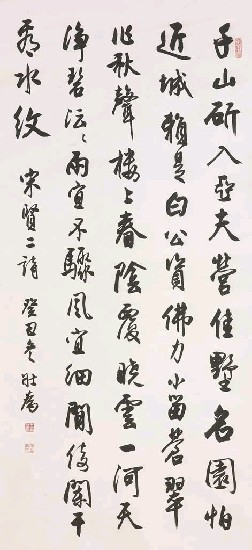 千山斫入亞夫營佳墅名園怕
近城猶是白公資佛力小留蒼翠
作秋聲樓上春陰覆曉雲一河天
淨碧沄沄雨宜不驟風宜細閒倚闌干
看水紋 宋賢二詩 癸丑冬 壯為